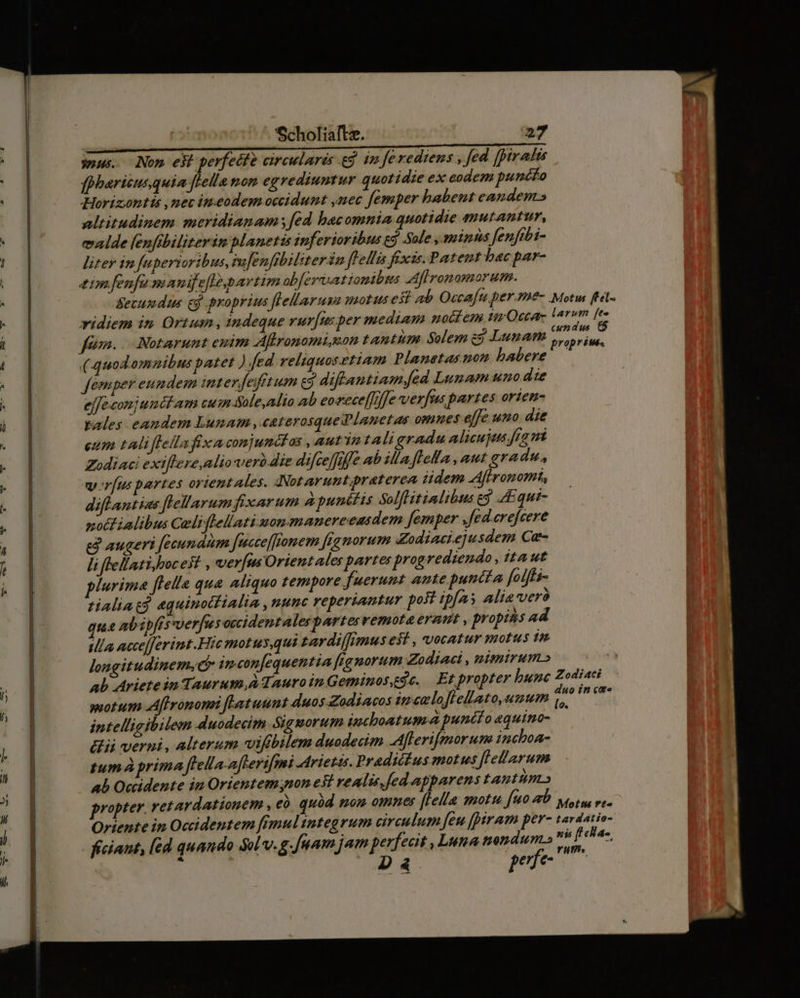 Scholiastæ. 27
mus. Non est perfectè circularis & in se rediens, sed spiralis
sphæricus, quia stellæ non egrediuntur quotidie ex eodem puncto
Horizontis, nec in eodem occidunt, nec semper habent eandem
altitudinem meridianam; sed hæc omnia quotidie mutantur,
valde sensibiliter in planetis inferioribus & Sole, minùs sensibi-
liter in superioribus, insensibiliter in stellis fixis. Patent hæc par-
tim sensu manifestè, partim observationibus Astronomorum.
Secundus & proprius stellarum motus est ab Occasu per me- Motus stel-
ridiem in Ortum, indeque rursus per mediam noctem in Occa- larum se-
sum. Notarunt enim Astronomi, non tantùm Solem & Lunam cundus &
(quod omnibus patet) sed reliquos etiam Planetas non habere proprius.
semper eundem inter se situm & distantiam, sed Lunam uno die
esse conjunctam cum Sole, alio ab eo recessisse versus partes orien-
tales. eandem Lunam, cæterosque Planetas omnes esse uno die
cum tali stella fixa conjunctos, aut in tali gradu alicujus signi
Zodiaci existere, alio verò die discessisse ab illa stella, aut gradu,
versus partes orientales. Notarunt præterea iidem Astronomi,
distantias stellarum fixarum à punctis Solstitialibus & Æqui-
noctialibus Cæli stellati non manere easdem semper, sed crescere
& augeri secundùm successionem signorum Zodiaci ejusdem Cæ-
li stellati, hoc est, versus Orientales partes progrediendo, ita ut
plurimæ stellæ quæ aliquo tempore fuerunt ante puncta solsti-
tialia & æquinoctialia, nunc reperiantur post ipsa; aliæ verò
quæ ab ipsis versus occidentales partes remotæ erant, propiùs ad
illa accesserint. Hic motus, qui tardissimus est, vocatur motus in
longitudinem, & in consequentia signorum Zodiaci, nimirum
ab Ariete in Taurum, à Tauro in Geminos, &c. Et propter hunc Zodiaci
motum Astronomi statuunt duos Zodiacos in cælo stellato, unum duo in cæ-
intelligibilem duodecim Signorum inchoatum à puncto æquino- lo.
ctii verni, alterum visibilem duodecim Asterismorum inchoa-
tum à prima stella asterismi Arietis. Prædictus motus stellarum
ab Occidente in Orientem, non est realis, sed apparens tantùm
propter retardationem, eò quòd non omnes stellæ motu suo ab Motus re-
Oriente in Occidentem simul integrum circulum seu spiram per- tardatio-
ficiant, sed quando Sol v. g. suam jam perfecit, Luna nondum nis stella-
D 4 perfe- rum.